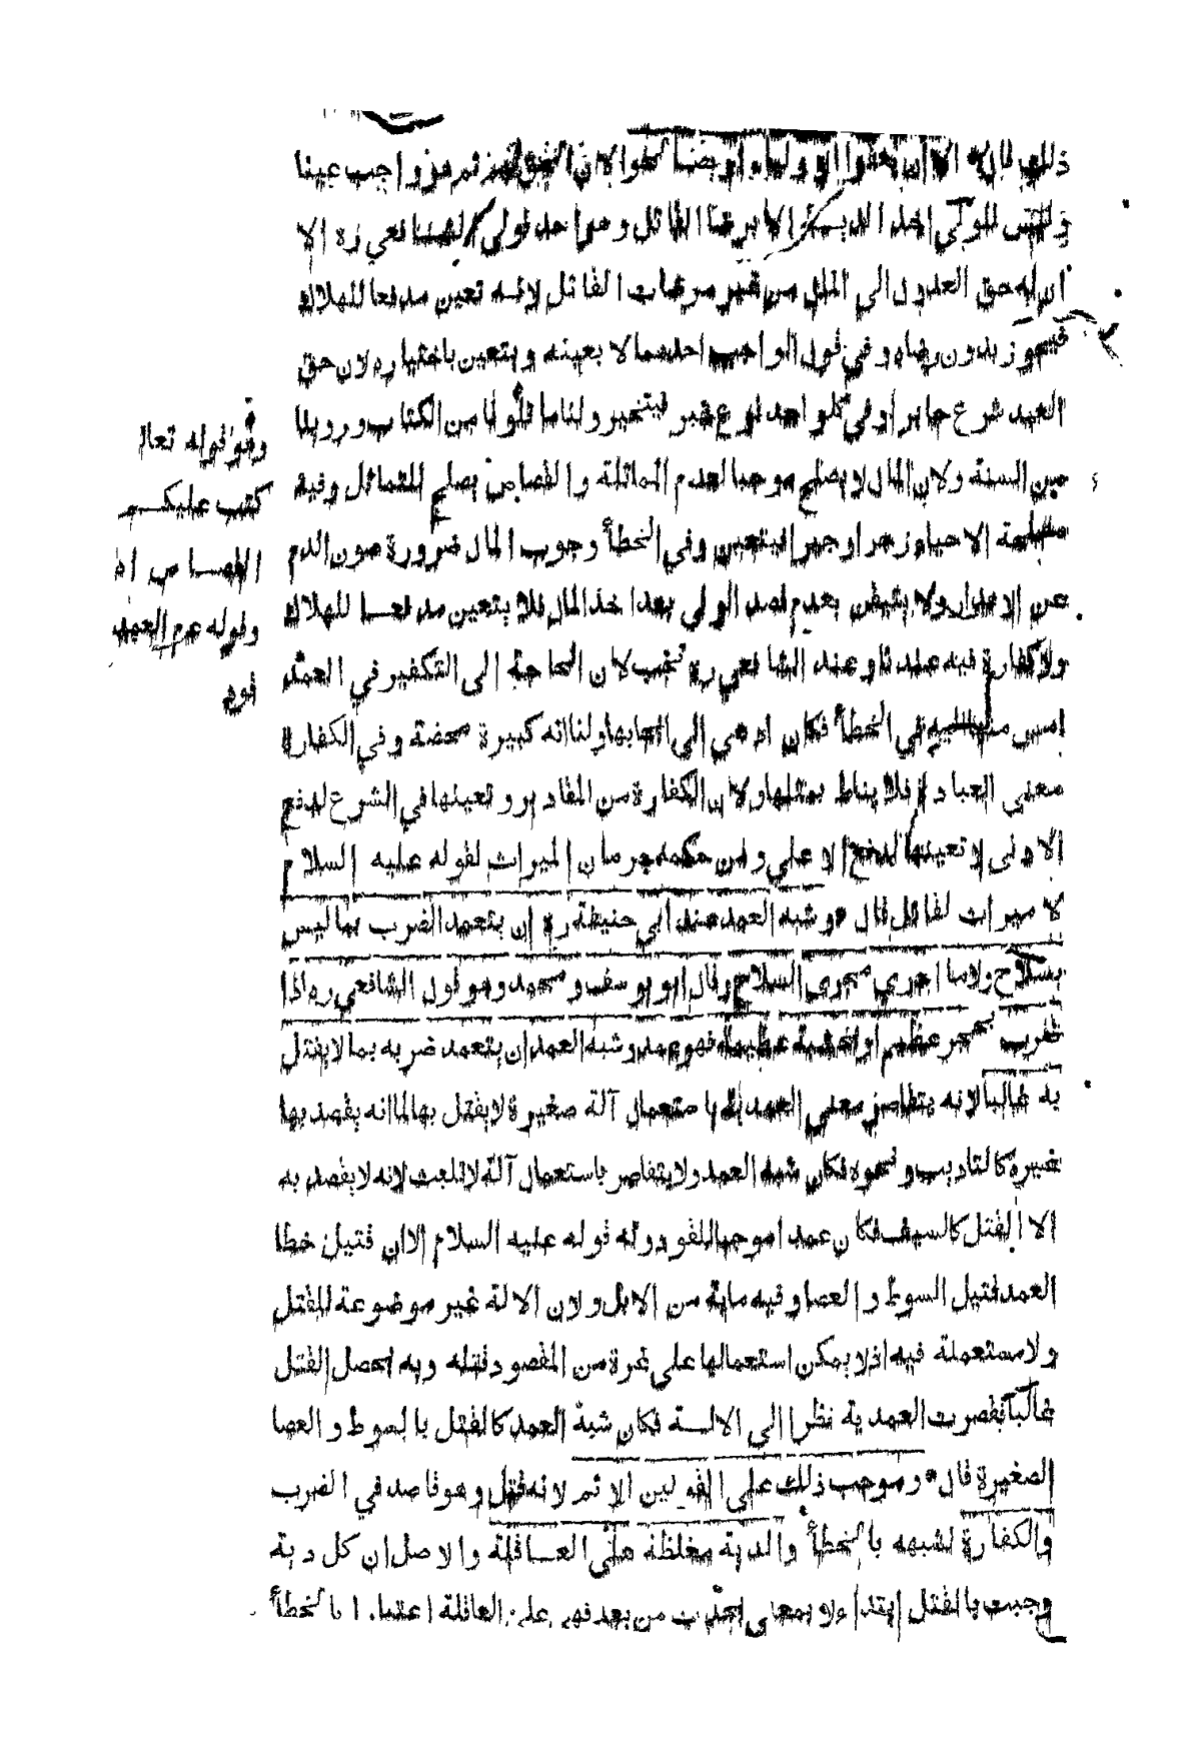 ذلك قال الا ان يعفوا الاولياء او يصالحوا لان الحق لهم ثم هو واجب عينا
وليس للولي اخذ الدية الا برضا القاتل وهو احد قولي الشافعي ره الا
ان له حق العدول الى المال من غير مرضات القاتل لانه تعين مدفعا للهلاك
فيجوز بدون رضاه وفي قول الواجب احدهما لا بعينه ويتعين باختياره لان حق
العبد شرع جابرا وفي كل واحد نوع جبر فيتخير ولنا ما تلونا من الكتاب وروينا
من السنة ولان المال لا يصلح موجبا لعدم المماثلة والقصاص يصلح للتماثل وفيه
مصلحة الاحياء زجرا وجبرا فيتعين وفي الخطأ وجوب المال ضرورة صون الدم
عن الاهدار ولا يتيقن بعدم قصد الولي بعد اخذ المال فلا يتعين مدفعا للهلاك
ولا كفارة فيه عندنا وعند الشافعي ره تجب لان الحاجة الى التكفير في العمد
امس منها اليه في الخطأ فكان ادعى الى ايجابها ولنا انه كبيرة محضة وفي الكفارة
معنى العبادة فلا يناط بمثلها ولان الكفارة من المقادير وتعينها في الشرع لدفع
الادنى لا تعينها لدفع الاعلى ومن حكمه حرمان الميراث لقوله عليه السلام
لا ميراث لقاتل قال وشبه العمد عند ابي حنيفة ره ان يتعمد الضرب بما ليس
بسلاح ولا ما اجري مجرى السلاح وقال ابو يوسف ومحمد وهو قول الشافعي ره اذا
ضرب بحجر عظيم او بخشبة عظيمة فهو عمد وشبه العمد ان يتعمد ضربه بما لا يقتل
به غالبا لانه يتقاصر معنى العمدية باستعمال آلة صغيرة لا يقتل بها لما انه يقصد بها
غيره كالتاديب ونحوه فكان شبه العمد ولا يتقاصر باستعمال آلة لا تلبث لانه لا يقصد به
الا القتل كالسيف فكان عمدا موجبا للقود وله قوله عليه السلام الا ان قتيل خطا
العمد قتيل السوط والعصا وفيه ماية من الابل ولان الالة غير موضوعة للقتل
ولا مستعملة فيه اذ لا يمكن استعمالها على غرة من المقصود قتله وبه يحصل القتل
غالبا فقصرت العمدية نظرا الى الالة فكان شبه العمد كالقتل بالسوط والعصا
الصغيرة قال وموجب ذلك على القولين الاثم لانه قتل وهو قاصد في الضرب
والكفارة لشبهه بالخطأ والدية مغلظة على العاقلة والاصل ان كل دية
وجبت بالقتل ابتداء لا بمعنى يحدث من بعد فهي على العاقلة اعتبارا بالخطأ
وهو قوله تعال
كتب عليكم
القصاص اه
وقوله عم العمد
قود